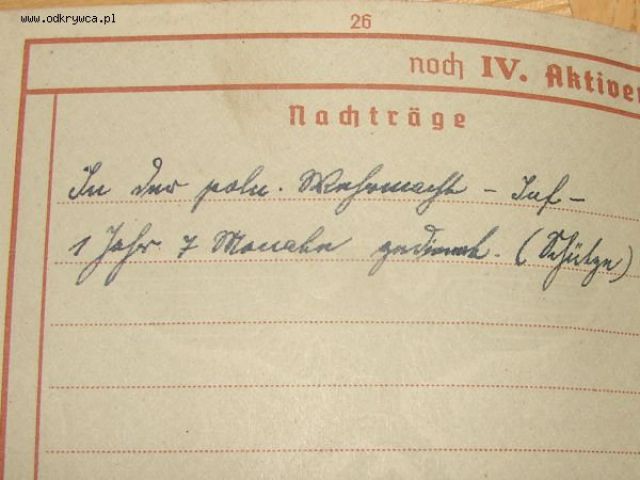 www.odkrywca.pl
26
noch IV. Aktiver
Nachträge
In der poln. Wehrmacht - Inf -
1 Jahr 7 Monate gedient. (Schütze)